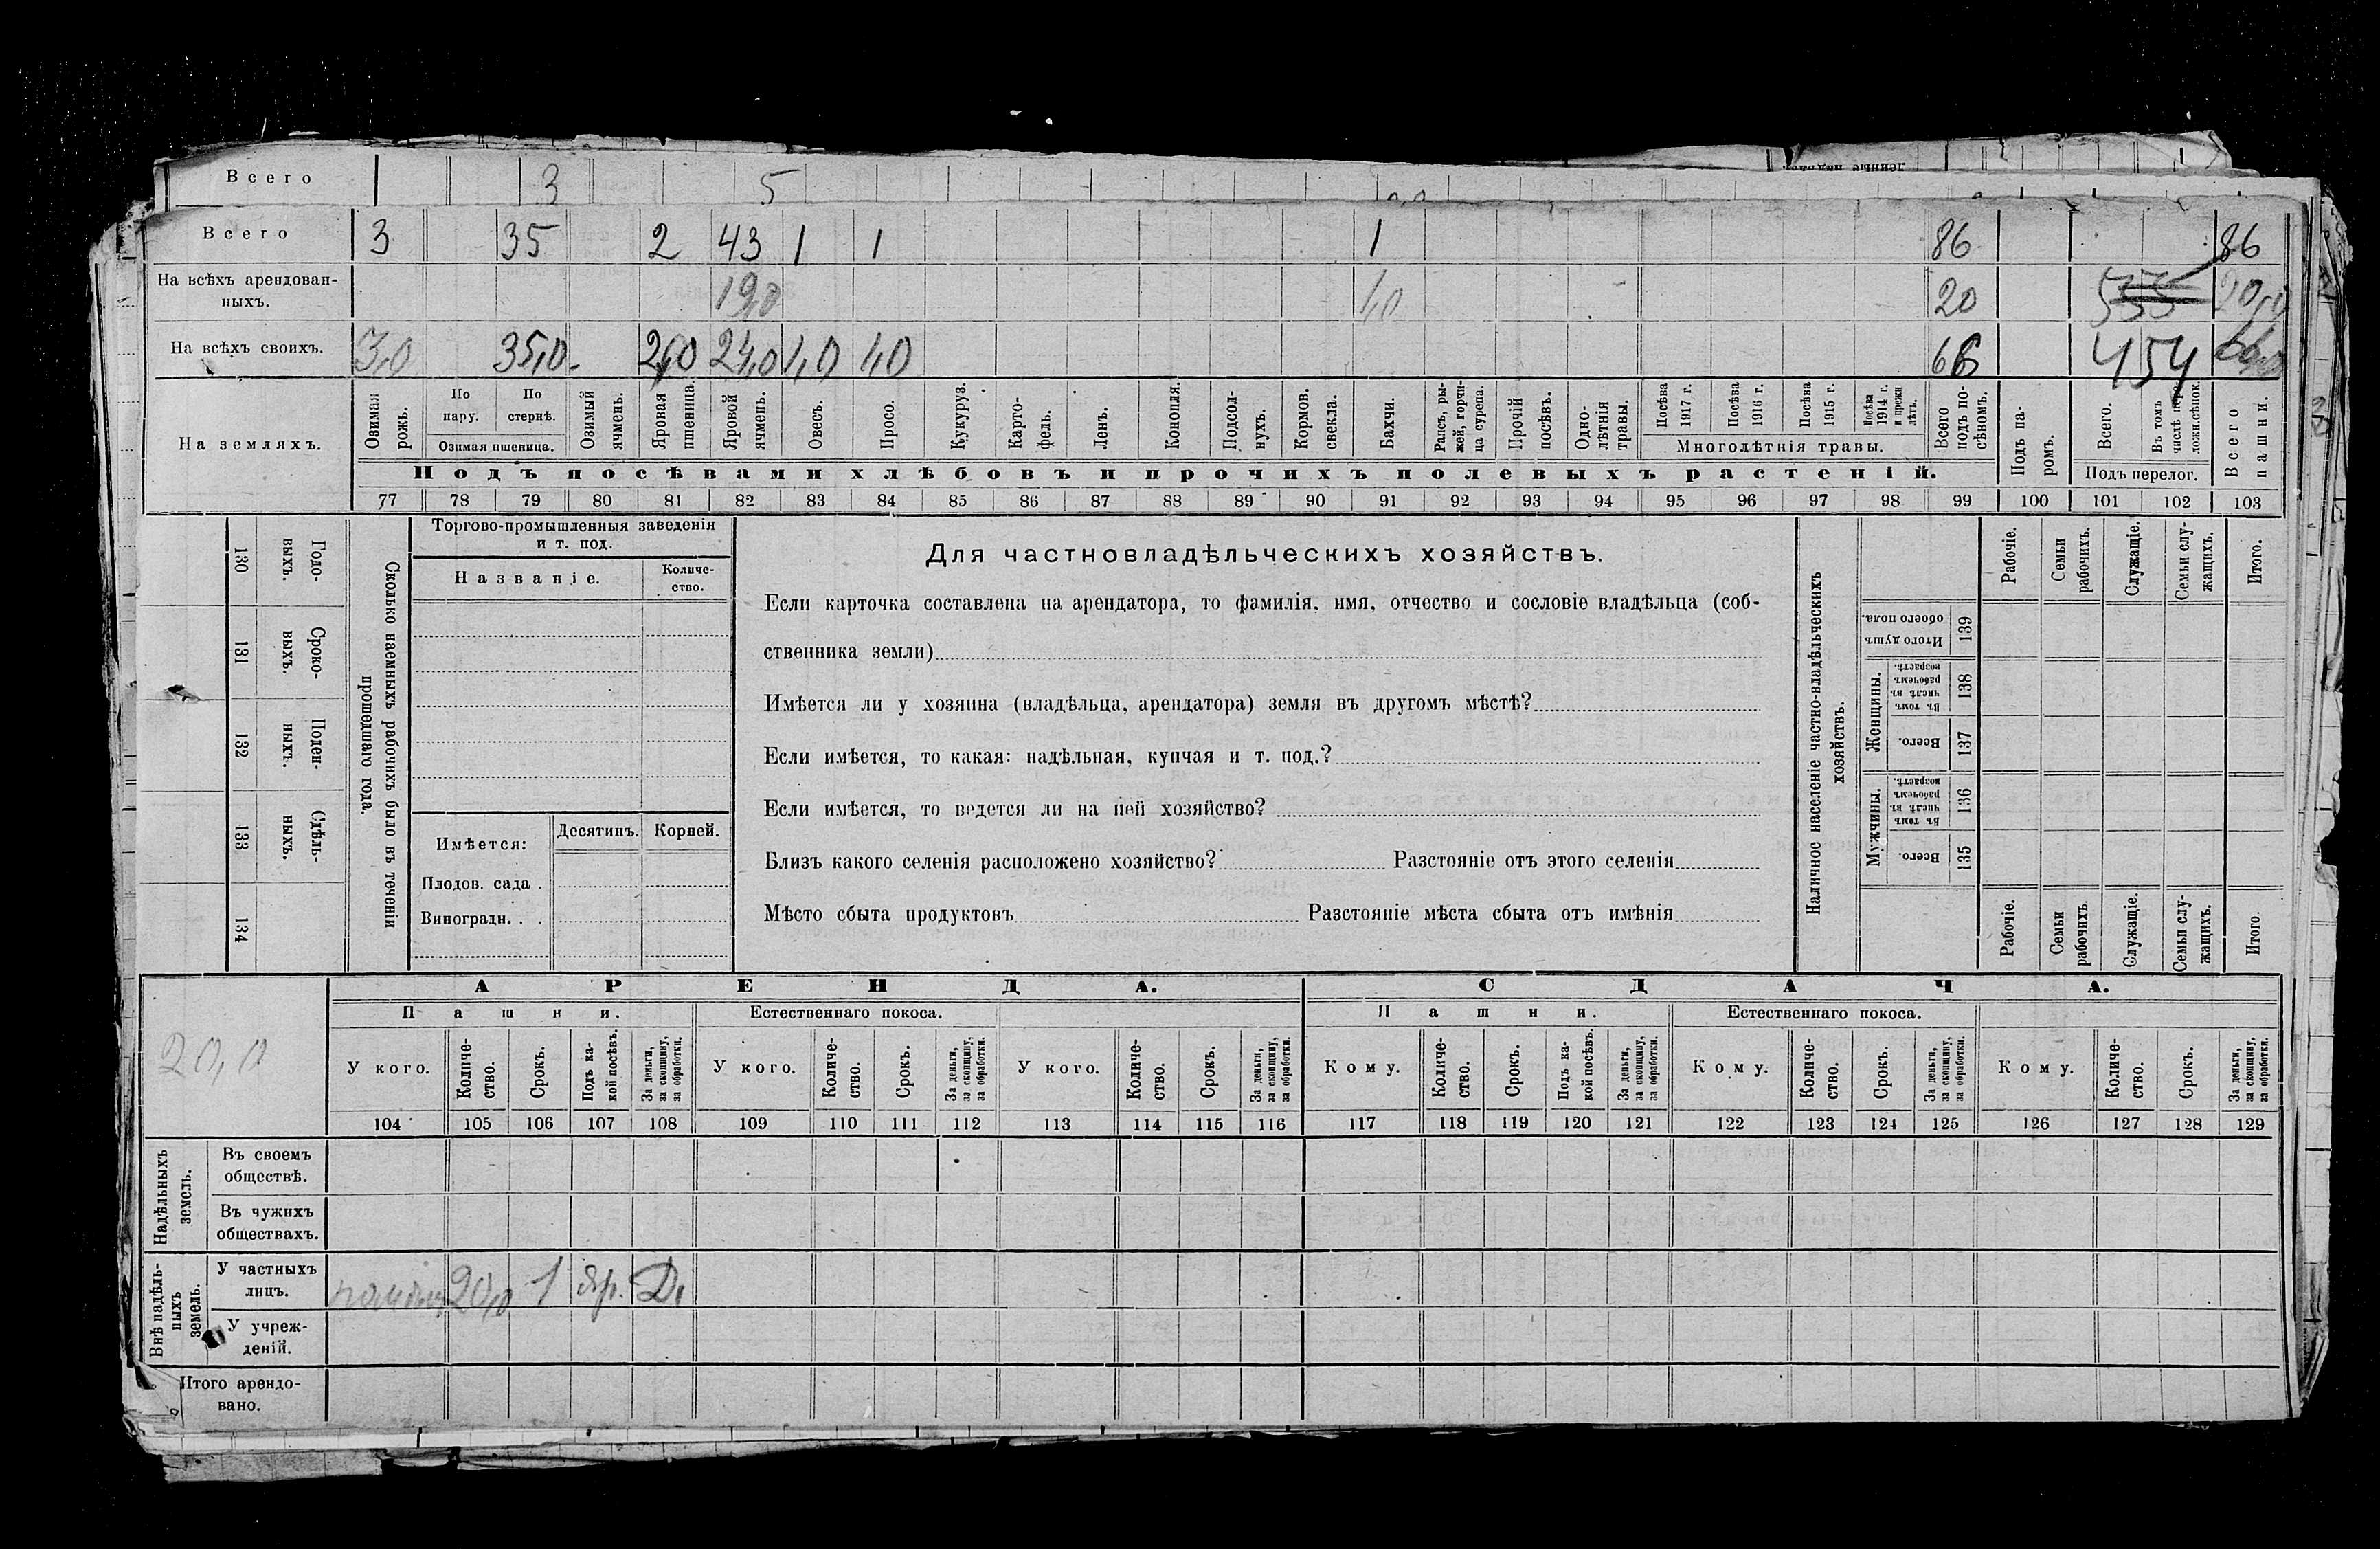 Всего 3 5
Всего 3 35 2 43 1 1 1 86 86
На всѣхъ арендован-
ныхъ. 19,0 1,0 20 20,0
На всѣхъ своихъ. 3,0 35,0 2,0 24,0 1,0 1,0 66 454
На земляхъ.
Озимая рожь.
По пару.
По стернѣ.
Озимая пшеница.
Озимый ячмень.
Яровая пшеница.
Яровой ячмень.
Овесъ.
Просо.
Кукуруз.
Карто-
фель.
Ленъ.
Конопля.
Подсол-
нухъ.
Кормов.
свекла.
Бахчи.
Рапсъ, ры-
жей, горчи-
ца сурепа.
Прочій
посѣвъ.
Одно-
лѣтнія
травы.
Посѣва
1917 г.
Посѣва
1916 г.
Посѣва
1915 г.
Посѣва
1914 г.
и прежн
лѣтъ.
Многолѣтнія травы.
Всего
подъ по-
сѣвомъ.
Подъ па-
ромъ.
Всего.
Въ томъ
числѣ пере-
ложн.сѣнок.
Подъ перелог.
Всего
пашни.
Подъ посѣвами хлѣбовъ и прочихъ полевыхъ растеній.
77 78 79 80 81 82 83 84 85 86 87 88 89 90 91 92 93 94 95 96 97 98 99 100 101 102 103
130 Годо-
выхъ.
131 Сроко-
выхъ.
132 Поден-
ныхъ.
133 Сдѣль-
ныхъ.
134
Сколько наемныхъ рабочихъ было въ теченіи
прошедшаго года.
Торгово-промышленныя заведенія
и т. под.
Названіе.
Количе-
ство.
Имѣется:
Десятинъ. Корней.
Плодов. сада .
Виноградн. . .
Для частновладѣльческихъ хозяйствъ.
Если карточка составлена на арендатора, то фамилія, имя, отчество и сословіе владѣльца (соб-
ственника земли)
Имѣется ли у хозяина (владѣльца, арендатора) земля въ другомъ мѣстѣ?
Если имѣется, то какая: надѣльная, купчая и т. под.?
Если имѣется, то ведется ли на ней хозяйство?
Близъ какого селенія расположено хозяйство? Разстояніе отъ этого селенія
Мѣсто сбыта продуктовъ Разстояніе мѣста сбыта отъ имѣнія
Наличное населеніе частно-владѣльческихъ
хозяйствъ.
Рабочіе.
Семьи
рабочихъ.
Служащіе.
Семьи слу-
жащихъ.
Итого.
Итого душъ
обоего пола. 139
Женщины.
Въ томъ
числѣ въ
рабочемъ
возрастѣ. 138
Всего. 137
Мужчины.
Въ томъ
числѣ въ
рабочемъ
возрастѣ. 136
Всего. 135
Рабочіе.
Семьи
рабочихъ.
Служащіе.
Семьи слу-
жащихъ.
Итого.
20,0
АРЕНДА. СДАЧА.
Пашни. Естественнаго покоса. Пашни. Естественнаго покоса.
У кого.
Количе-
ство.
Срокъ.
Подъ ка-
кой посѣвъ.
За деньги,
за скопщину,
за обработки.
У кого.
Количе-
ство.
Срокъ.
За деньги,
за скопщину,
за обработки.
У кого.
Количе-
ство.
Срокъ.
За деньги,
за скопщину,
за обработки.
Кому.
Количе-
ство.
Срокъ.
Подъ ка-
кой посѣвъ.
За деньги,
за скопщину,
за обработки.
Кому.
Количе-
ство.
Срокъ.
За деньги,
за скопщину,
за обработки.
Кому.
Количе-
ство.
Срокъ.
За деньги,
за скопщину,
за обработки.
104 105 106 107 108 109 110 111 112 113 114 115 116 117 118 119 120 121 122 123 124 125 126 127 128 129
Надѣльныхъ
земель.
Въ своемъ
обществѣ.
Въ чужихъ
обществахъ.
Внѣ надѣль-
ныхъ
земель.
У частныхъ
лицъ. 20,0 1 Яр. Д.
У учреж-
деній.
Итого арендо-
вано.